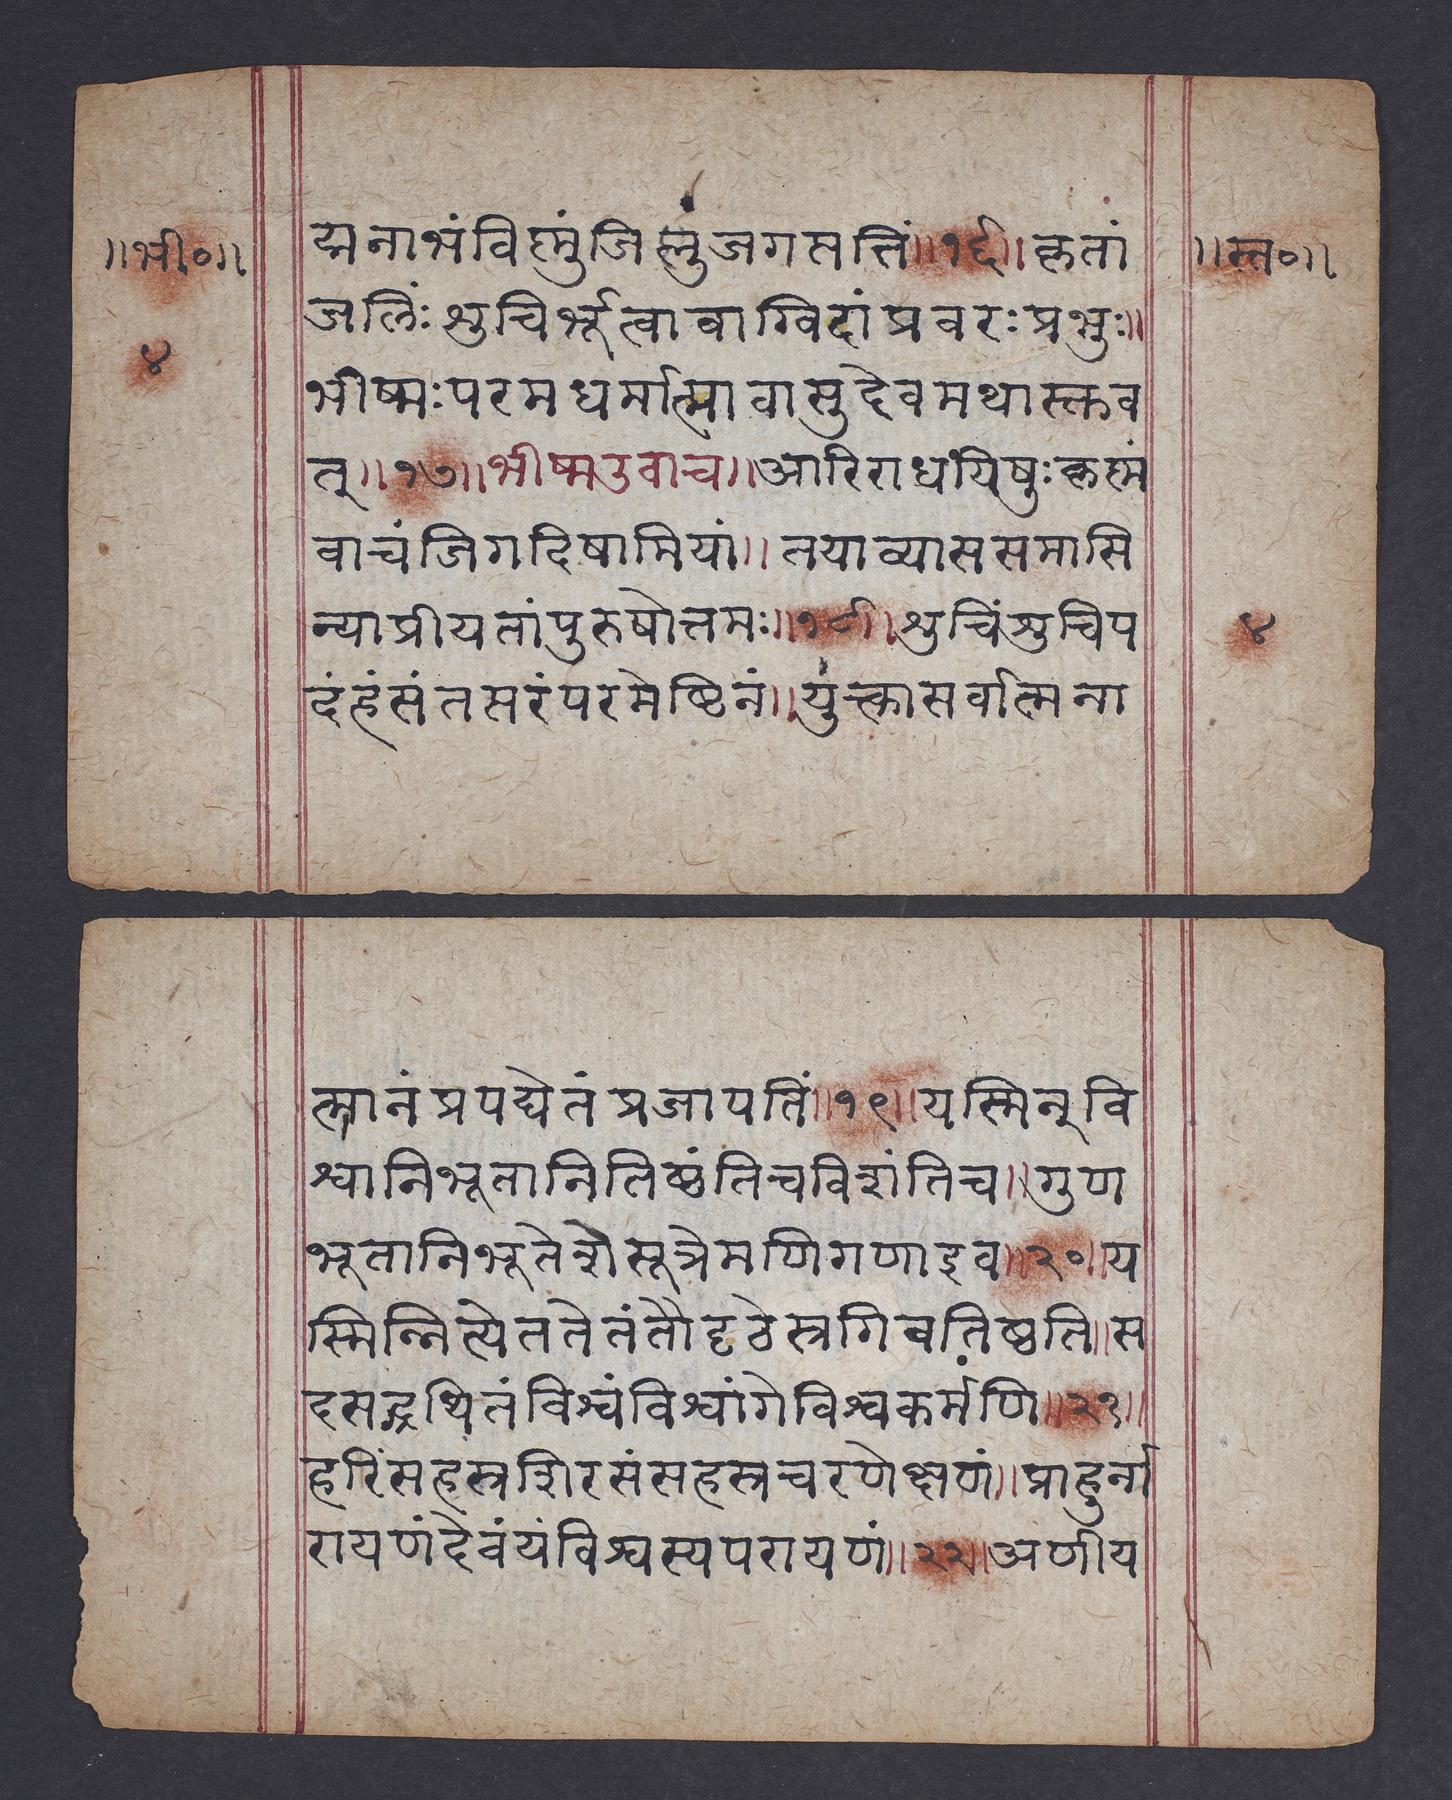 ॥भी०॥
४
द्मनाभंविष्णुंजिष्णुंजगत्पतिं॥१६॥कृतां
जलिंःशुचिर्भूत्वावाग्विदांप्रवरःप्रभुः॥
भीष्मःपरमधर्मात्मावासुदेवमथास्तव
त्॥१७॥भीष्मउवाच॥आरिराधयिषुःकृष्णं
वाचंजिगदिषामियां॥तयाव्याससमासि
न्याप्रीयतांपुरुषोत्तमः॥१८॥शुचिंशुचिप
दंहंसंतत्परंपरमेष्टिनं॥युक्त्वासर्वात्मना
॥स्त०॥
४
त्मानंप्रपद्येतंप्रजापतिं॥१९॥यस्मिन्वि
श्वानिभूतानितिष्ठंतिचविशंतिच॥गुण
भूतानिभूतेशेसूत्रेमणिगणाइव॥२०॥य
स्मिन्नित्येततेतंतौदृढेस्रगिवतिष्ठति॥स
दसद्ग्रथितंविश्वंविश्वांगेविश्वकर्मणि॥२१॥
हरिंसहस्रशिरसंसहस्रचरणेक्षणं॥प्राहुर्ना
रायणंदेवंयंविश्वस्यपरायणं॥२२॥अणीय